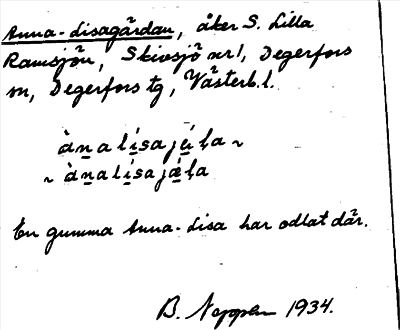 Anna-Lisagärdan, åker S. Lilla
Ramsjön, Skivsjö nr 1, Degerfors
sn, Degerfors tg, Västerb. l.
àṉalísajǘla ~
~ àṉalísajǽla
En gumma Anna-Lisa har odlat där.
B. 1934.